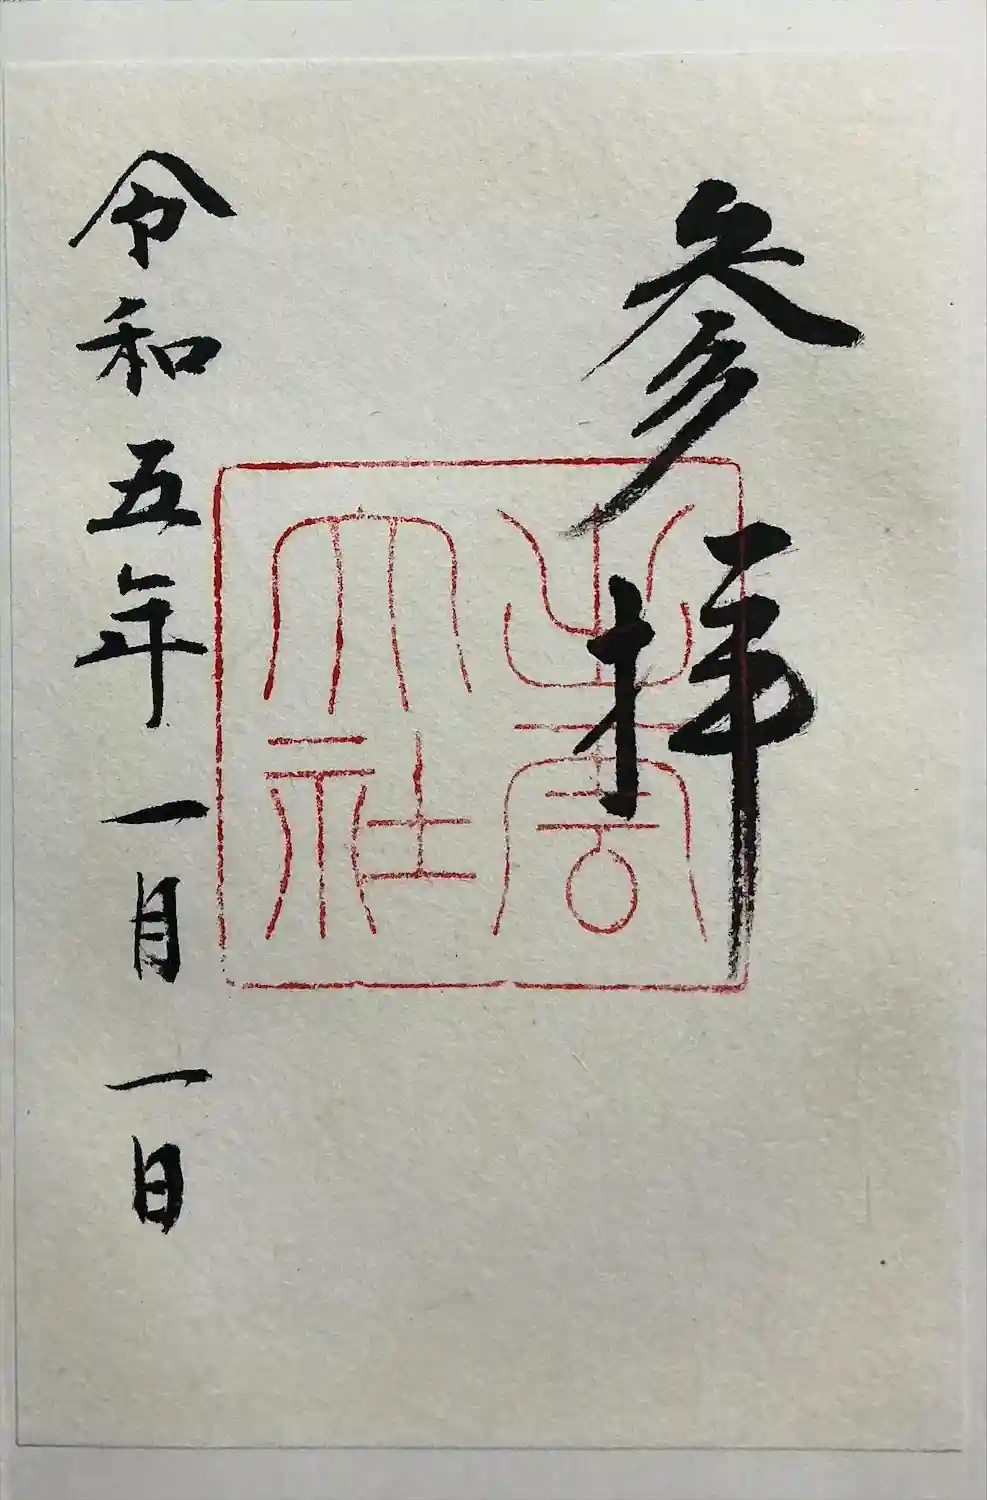 参拝
出雲
大社
令和五年一月一日